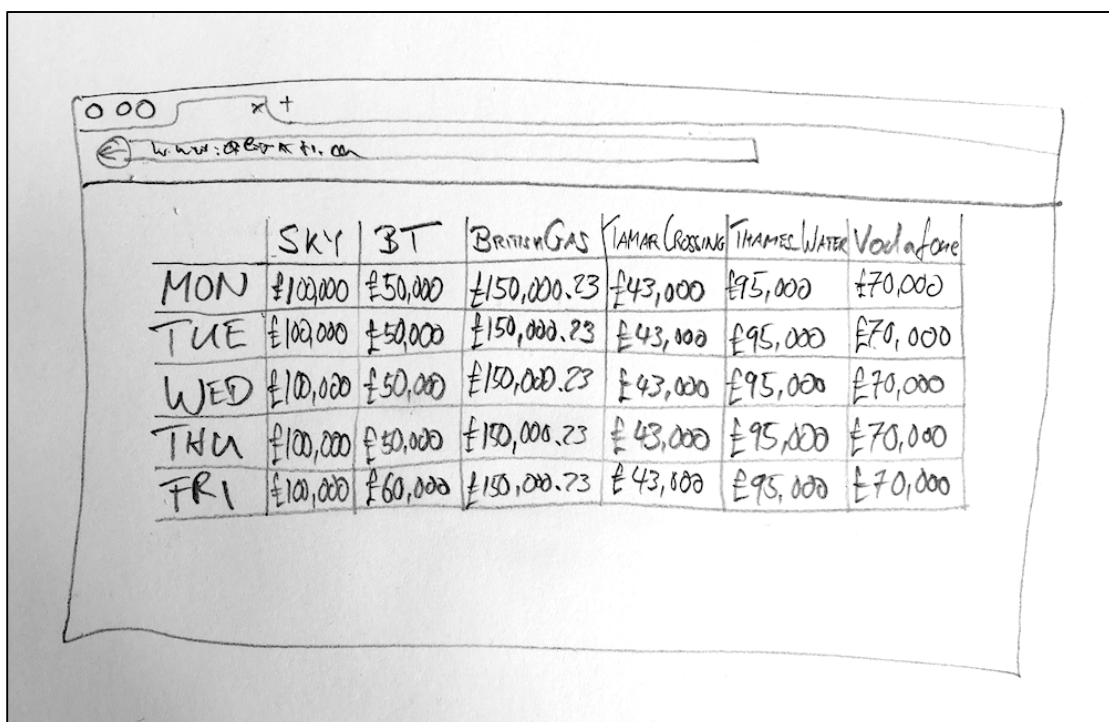 x +
SKY BT BRITISH GAS TAMAR CROSSING THAMES WATER Vodafone
MON £100,000 £50,000 £150,000.23 £43,000 £95,000 £70,000
TUE £100,000 £50,000 £150,000.23 £43,000 £95,000 £70,000
WED £100,000 £50,000 £150,000.23 £43,000 £95,000 £70,000
THU £100,000 £50,000 £150,000.23 £43,000 £95,000 £70,000
FRI £100,000 £60,000 £150,000.23 £43,000 £95,000 £70,000